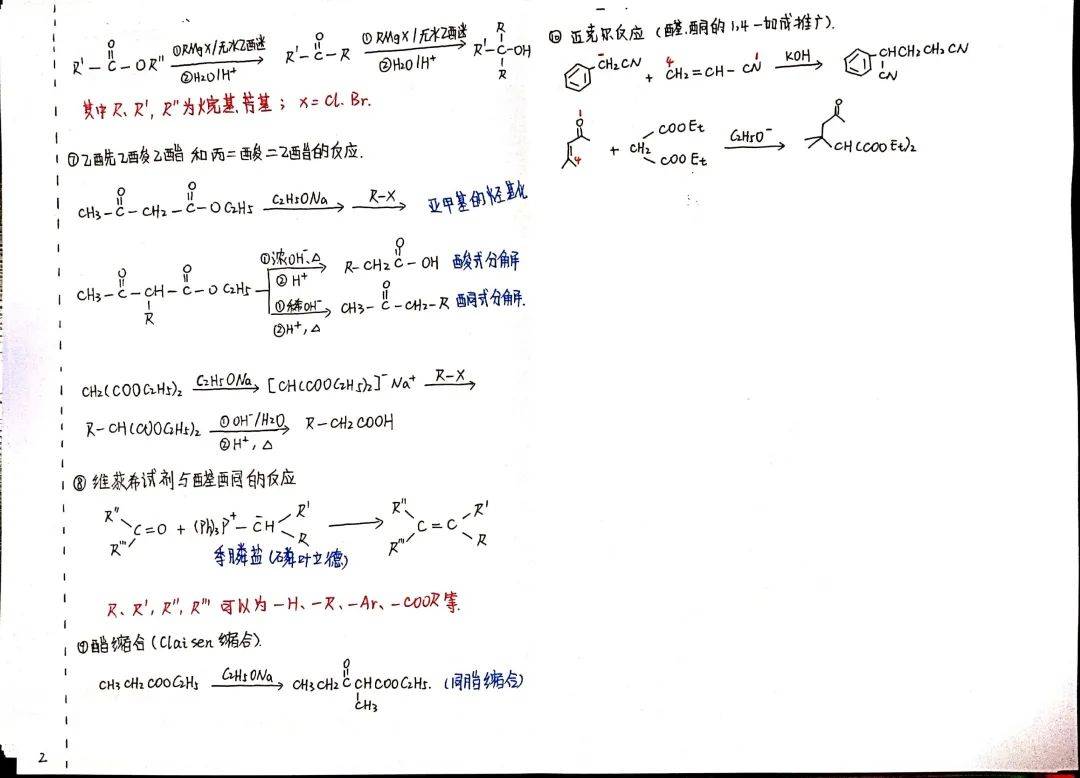 R'-C(=O)-OR" ①RMgX/无水乙醚 ②H2O/H+ → R'-C(=O)-R ①RMgX/无水乙醚 ②H2O/H+ → R'-C(R)(R)-OH
其中R、R', R"为烷基、芳基; X=Cl. Br.
⑦乙酰乙酸乙酯和丙二酸二乙酯的反应.
CH3-C(=O)-CH2-C(=O)-OC2H5 C2H5ONa → R-X → 亚甲基的烃基化
CH3-C(=O)-CH(R)-C(=O)-OC2H5
①浓OH-,△ ②H+ → R-CH2C(=O)-OH 酸式分解
①稀OH- ②H+,△ → CH3-C(=O)-CH2-R 酮式分解.
CH2(COOC2H5)2 C2H5ONa → [CH(COOC2H5)2]- Na+ R-X →
R-CH(COOC2H5)2 ①OH-/H2O ②H+,△ → R-CH2COOH
⑧维荻希试剂与醛基酮的反应
R" R''' C=O + (Ph)3P+-C̄H R' R → R" R''' C=C R' R
季膦盐(磷叶立德)
R、R', R", R''' 可以为-H、-R、-Ar、-COOR等.
⑨酯缩合(Claisen缩合).
CH3CH2COOC2H5 C2H5ONa → CH3CH2C(=O)CH(CH3)COOC2H5. (同酯缩合)
2
⑩ 迈克尔反应 (醛.酮的1,4-加成推广).
CH2CN + 4 CH2=CH-CN 1 KOH → CHCH2CH2CN CN
O 1 4 + CH2 COOEt COOEt C2H5O- → O CH(COOEt)2